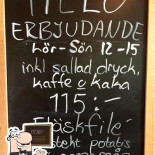 HELG
ERBJUDANDE
Lör-Sön 12-15
inkl sallad dryck,
kaffe o kaka
115:-
Fläskfilé
stekt potatis